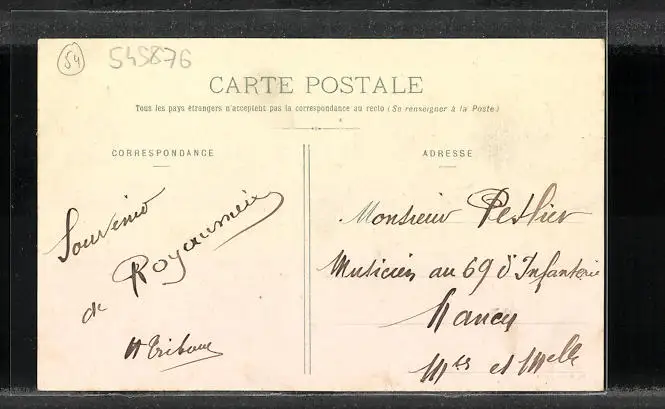 54 545876
CARTE POSTALE
Tous les pays étrangers n'acceptent pas la correspondance au recto (Se renseigner à la Poste)
CORRESPONDANCE
Souvenir
de Royaumeix
ADRESSE
Monsieur
Musicien au 69 d'Infanterie
Nancy
Mthe et Mlle